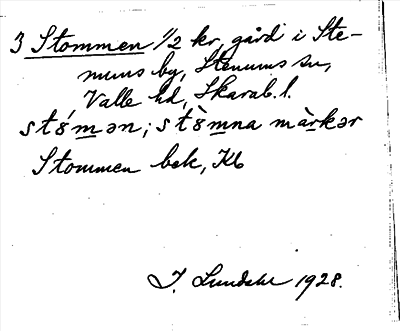 3 Stommen 1/2 kr, gård i Ste-
nums by, Stenums sn,
Valle hd, Skarab. l.
stǿmən; stø̀mna mà̀rkər
Stommen bek, Kb
J. Lundahl 1928.